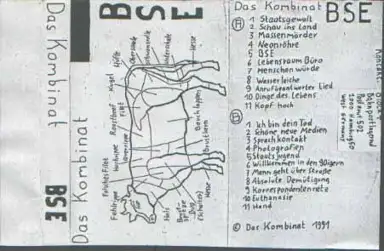 Das Kombinat
BSE
Das Kombinat
BSE
Hüfte
Oberschale
Schwanzrolle
Unterschale
Hesse
Kugel
Filet
Roastbeef
Hochrippe
Falsches Filet
Fehlrippe
Bauchlappen
Brustkern
Bug
(Schulter)
Hesse
Das Kombinat
BSE
A
1 Staatsgewalt
2 Schau ins Land
3 Massenmörder
4 Neonröhre
5 BSE
6 Lebensraum Büro
7 Menschenwürde
8 Wasserleiche
9 Anrufbeantworter Lied
10 Dinge des Lebens
11 Kopf hoch
B
1 Ich bin dein Tod
2 Schöne neue Medien
3 Sprachkontakt
4 Photografien
5 Staatsjugend
6 Willkommen in den 90igern
7 Mann geht über Straße
8 Absolute Demütigung
9 Korrespondentennetz
10 Euthanasie
11 Hand
© Das Kombinat 1991
West Germany